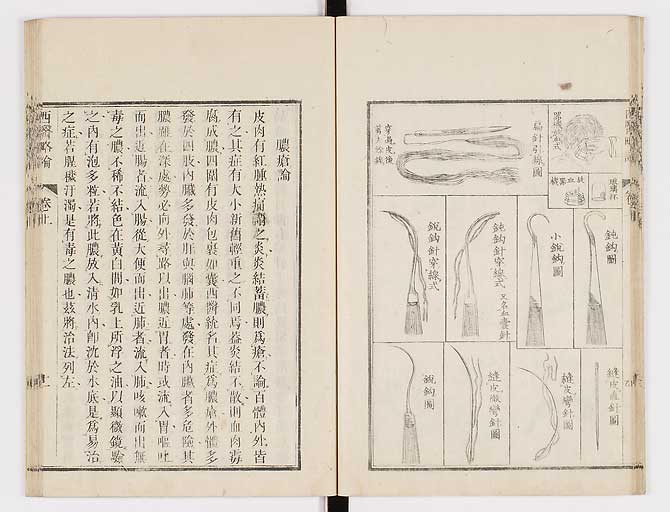 玻璃杯
扁針引線圖
鈍鈎圖
小銳鈎圖
鈍鈎針穿線式
又名血囊針
銳鈎針穿線式
縫皮直針圖
縫皮彎針圖
縫皮微彎針圖
銳鈎圖
膿瘡論
皮肉有紅腫熱痛謂之炎炎結蓄膿則爲瘡不論百體內外皆
有之其症有大小新舊輕重之不同焉蓋炎結不散則血肉毒
腐成膿四圍有皮肉包裹如囊西醫統名其症爲膿瘡外體多
發於四肢內臟多發於肝與腦肺等處發在內臟者多危險其
膿雖在深處勢必向外尋路以出膿近胃者時或流入胃嘔吐
而出近腸者流入腸從大便而出近肺者流入肺咳嗽而出無
毒之膿不稀不結色在黃白間如乳上所浮之油以顯微鏡驗
之內有泡多粒若將此膿放入清水內卽沈於水底是爲易治
之症若腥穢汙濁是有毒之膿也茲將治法列左
西醫略論